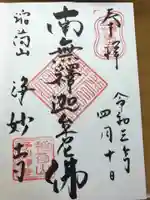 奉拝
令和三年
四月十日
南無釋迦牟尼佛
稲荷山
浄妙寺